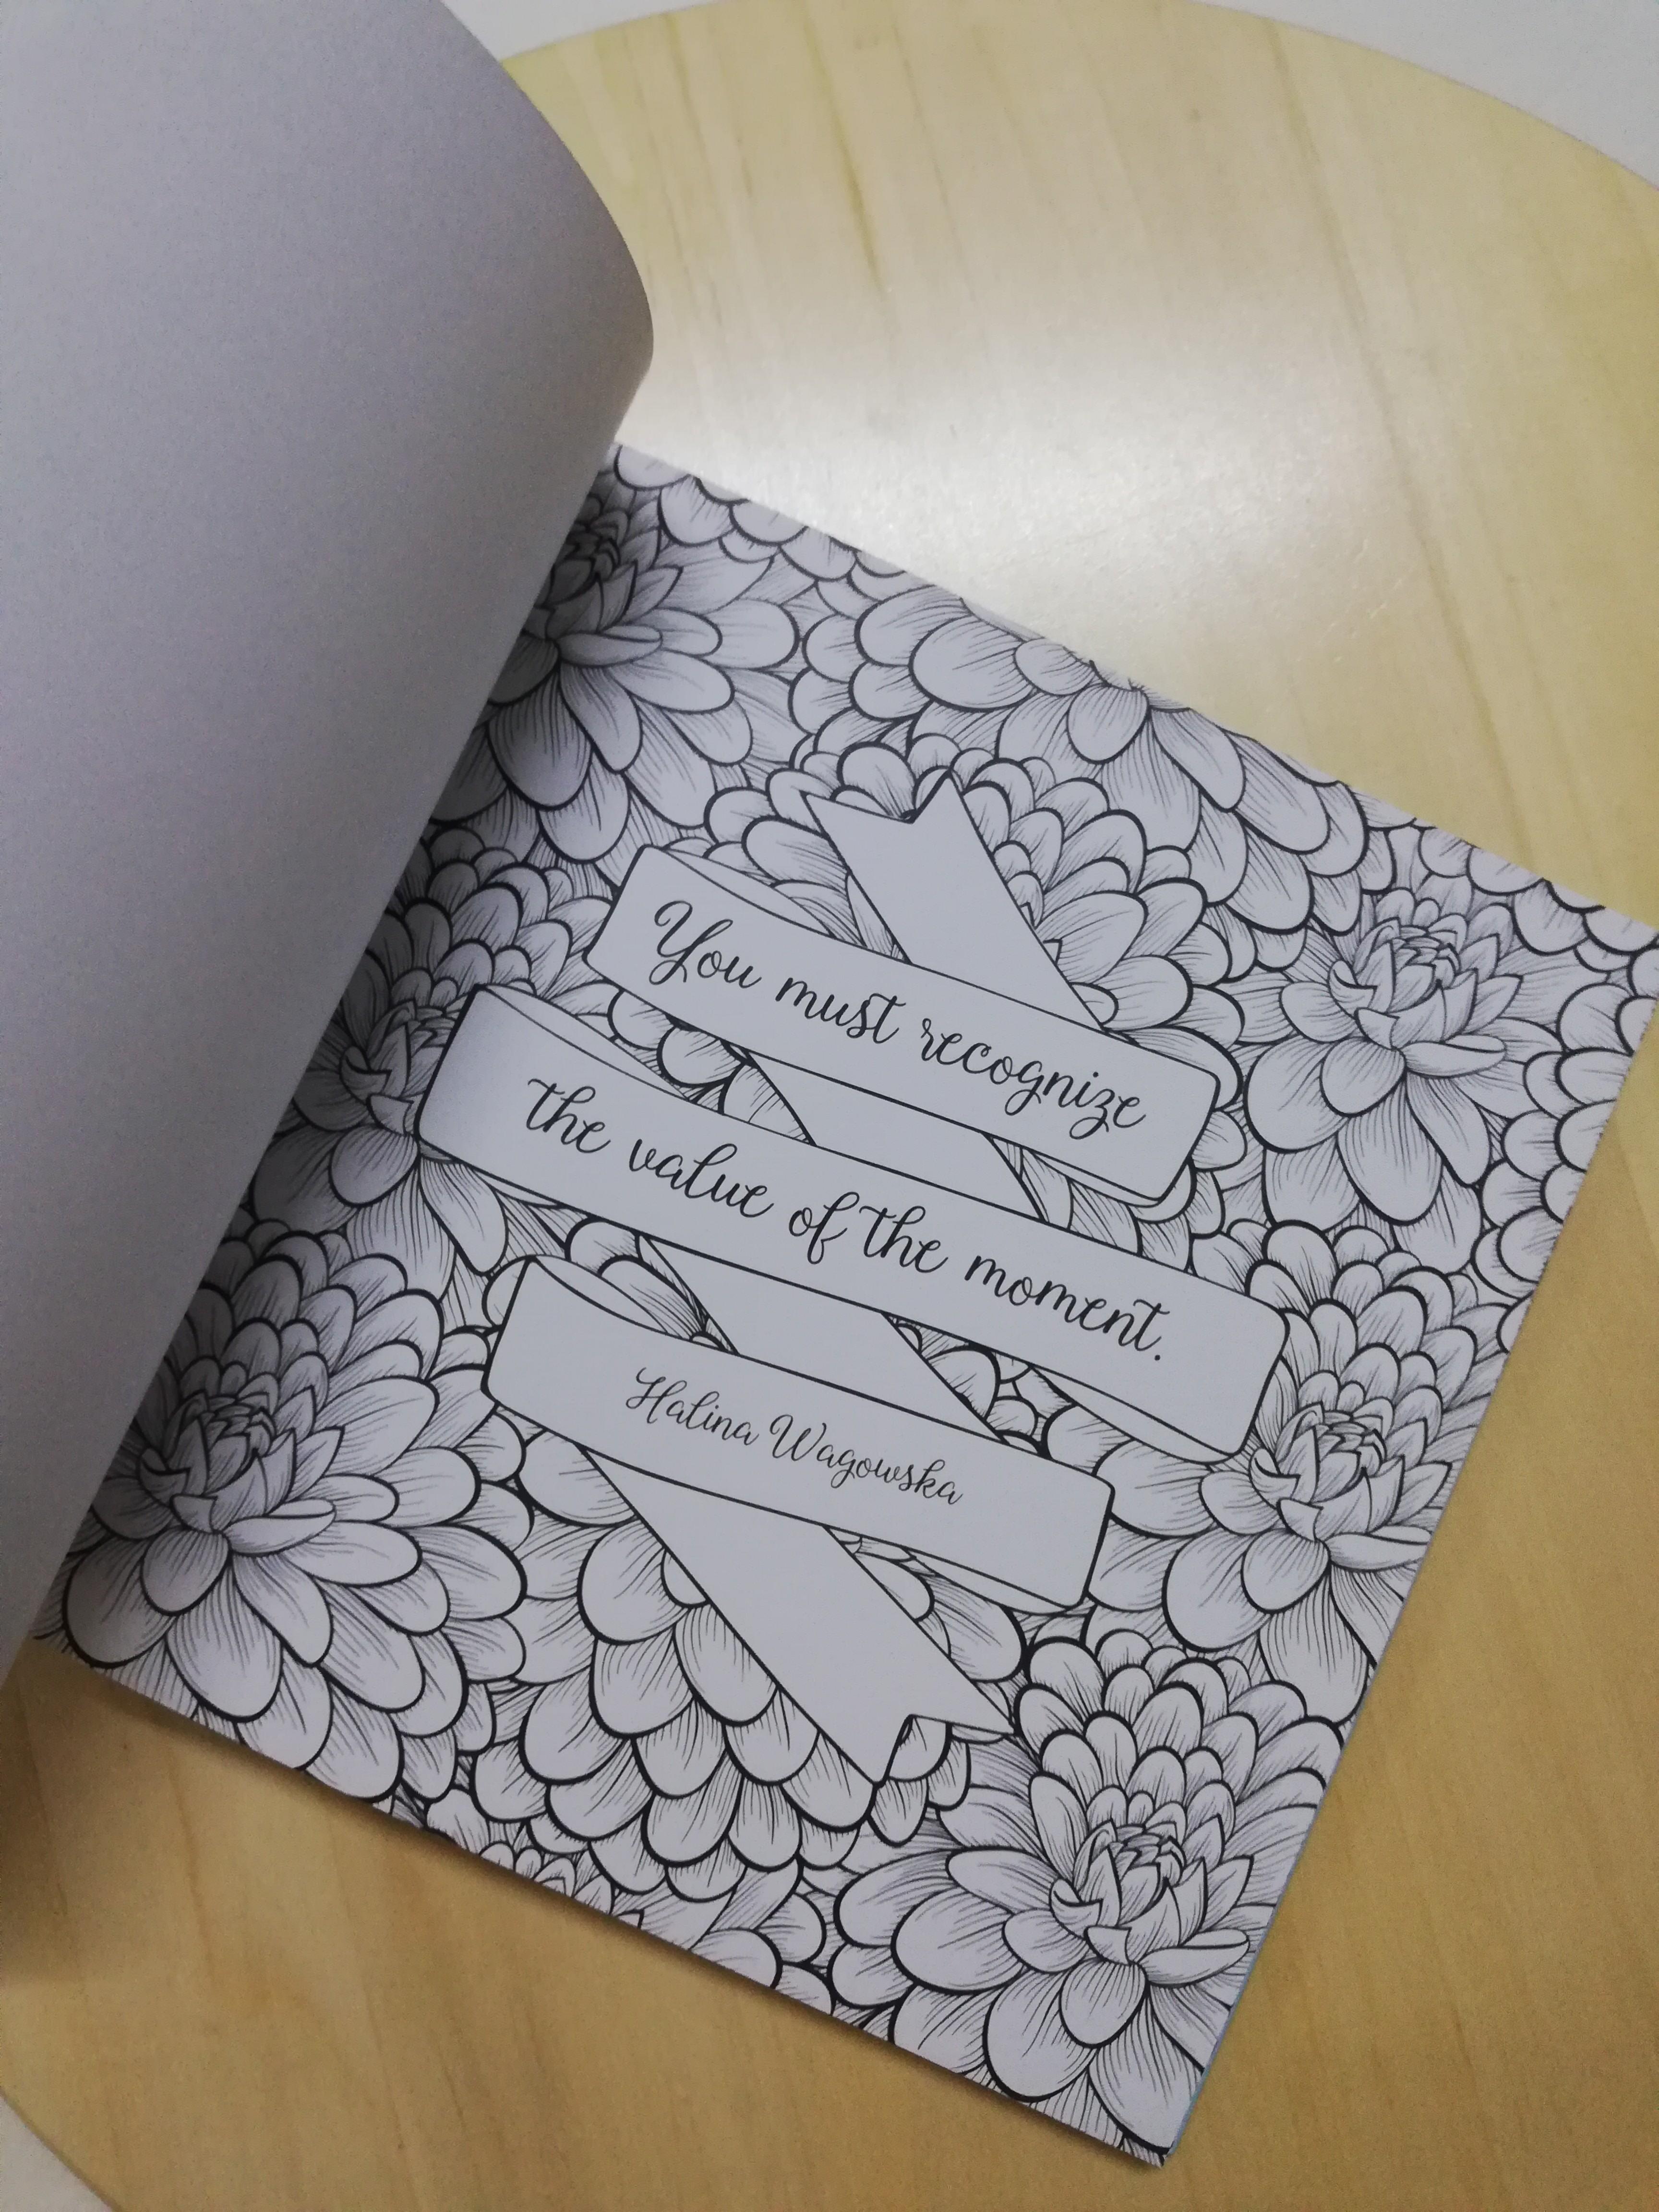 You must recognize
the value of the moment.
Halina Wagowska